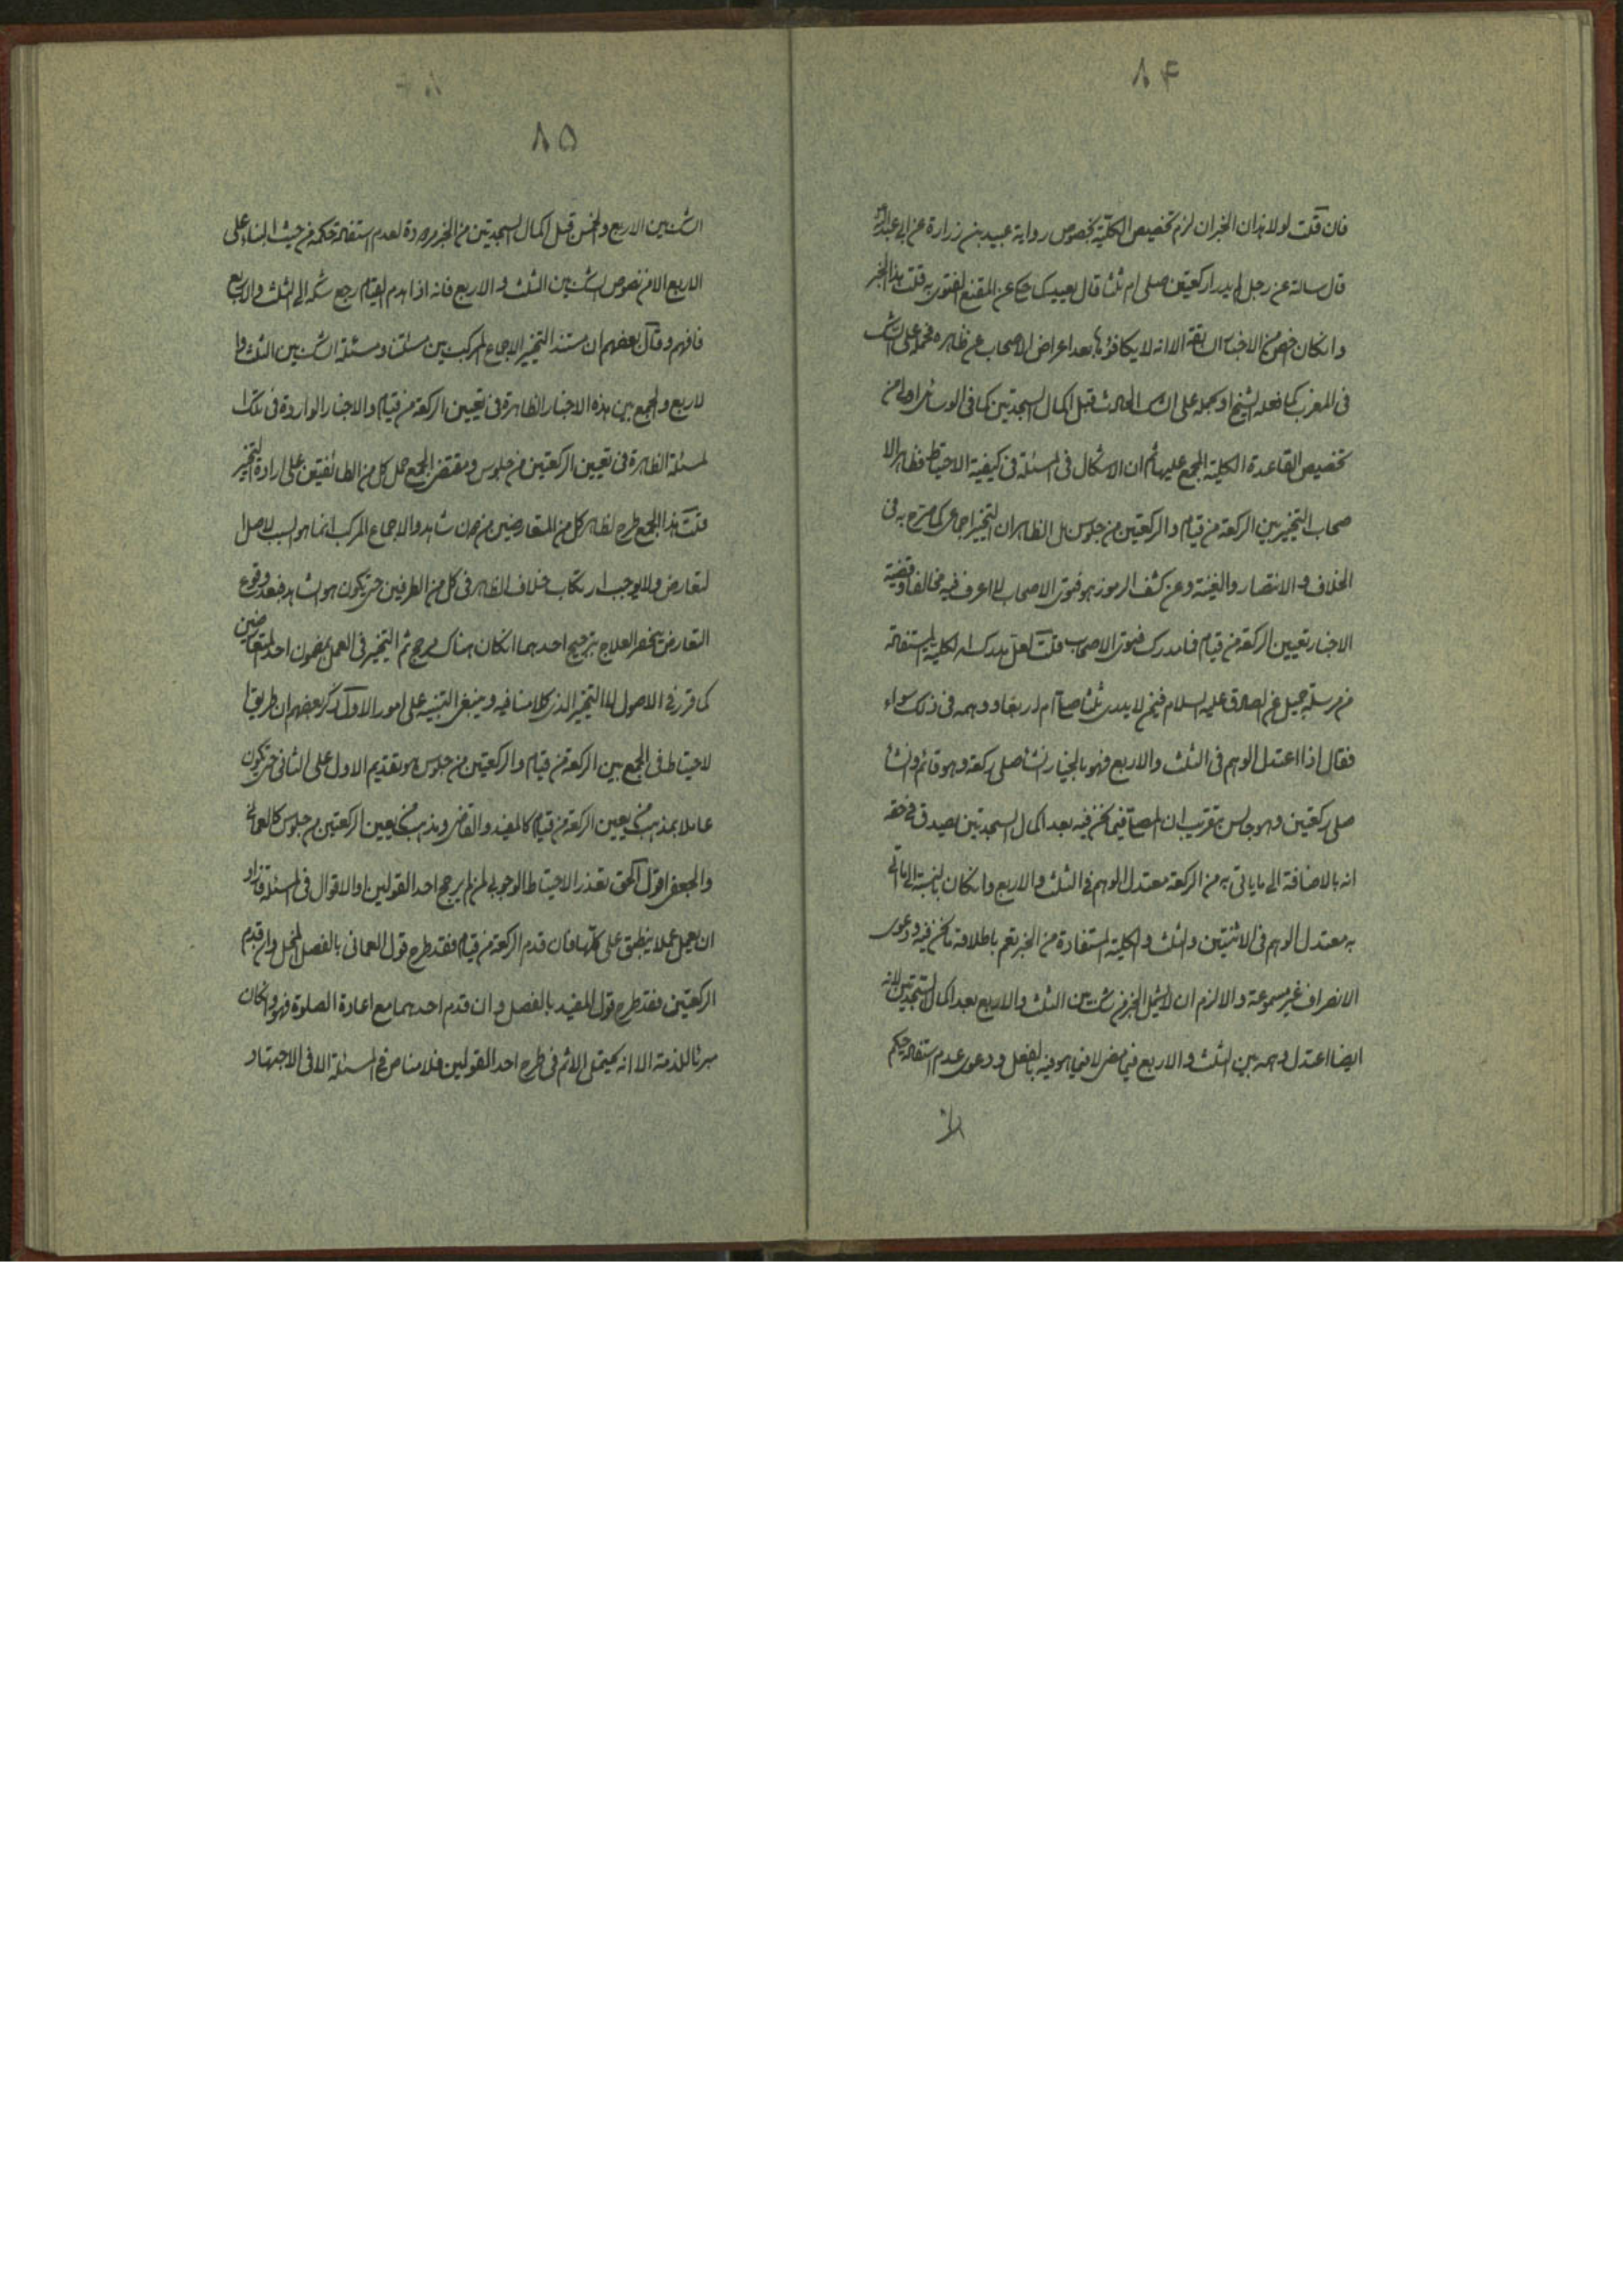 ۸۴
فان قلت لولا هذان الخبران لزم تخصيص الكلية بخصوص رواية عبيد بن زرارة عن ابي عبد الله
قال سالته عن رجل لم يدر اركعتين صلى ام ثلثا قال يعيد كما حكى عن المقنع الفتوى به قلت هذا الخبر
وان كان اخص من الاخبار السابقة الا انه لا يكافؤها بعد اعراض الاصحاب عن ظاهره فحمله على الشك
فى المغرب كما فعله الشيخ او يحمله على الشك الحادث قبل اكمال السجدتين كما فى الوسائل اولى من
تخصيص القاعدة الكلية المجمع عليها ثم ان الاشكال فى المسئلة فى كيفية الاحتياط فظاهر الا
صحاب التخيير بين الركعة من قيام والركعتين من جلوس بل الظاهر ان التخيير اجماعى كما صرح به فى
الخلاف و الانتصار والغنية وعن كشف الرموز هو فتوى الاصحاب لا اعرف فيه مخالفا وقضية
الاخبار تعيين الركعة من قيام فما مدرك فتوى الاصحاب قلت لعل مدركه الكلية المستفادة
من مرسلة جميل عن الصادق عليه السلام فيمن لا يدرى ثلثا صلى ام اربعا و وهمه فى ذلك سواء
فقال اذا اعتدل الوهم فى الثلث والاربع فهو بالخيار ان شاء صلى ركعة وهو قائم وان شاء
صلى ركعتين وهو جالس بتقريب ان المصلى فيما نحن فيه بعد اكمال السجدتين يصدق فى حقه
انه بالاضافة الى ما ياتى به من الركعة معتدل الوهم فى الثلث والاربع وان كان بالنسبة الى ما اتى
به معتدل الوهم فى الاثنتين والثلث والكلية المستفادة من الخبر تعم باطلاقه ما نحن فيه ودعوى
الانصراف غير مسموعة والا لزم ان لا يشمل الخبر من شك بين الثلث والاربع بعد اكمال السجدتين لانه
ايضا اعتدل وهمه بين الثلث والاربع فيما مضى لا فيما هو فيه بالفعل ودعوى عدم استفادة حكم
۸۵
الشك بين الاربع والخمس قبل اكمال السجدتين من الخبر مردودة لعدم استفادة حكمه من حيث البناء على
الاربع الا من نصوص الشك بين الثلث والاربع فانه اذا هدم القيام رجع شكه الى الثلث والاربع
فافهم وقال بعضهم ان مستند التخيير الاجماع المركب بين مسئلتنا ومسئلة الشك بين الثلث وا
لاربع والجمع بين هذه الاخبار الظاهرة فى تعيين الركعة من قيام والاخبار الواردة فى تلك ا
لمسئلة الظاهرة فى تعيين الركعتين من جلوس ومقتضى الجمع حمل كل من الطائفتين على ارادة التخيير
قلت هذا الجمع طرح لظاهر كل من المتعارضين من دون شاهد والاجماع المركب انما هو السبب لاصل ا
لتعارض ولا يوجب ارتكاب خلاف الظاهر فى كل من الطرفين حتى يكون هو الشاهد فبعد وقوع
التعارض ينحصر العلاج بترجيح احدهما ان كان هناك مرجح ثم التخيير فى العمل بمضمون احد المتعارضين
كما قرر فى الاصول لا التخيير الذى كلامنا فيه وينبغى التنبيه على امور الاول ذكر بعضهم ان طريق ا
لاحتياط فى الجمع بين الركعة من قيام والركعتين من جلوس هو تقديم الاول على الثانى حتى يكون
عاملا بمذهب من يعين الركعة من قيام كالمفيد والقاضى وبمذهب من يعين الركعتين من جلوس كالعمانى
والجعفى اقول الحق تعذر الاحتياط الوجوبى لمن لم يرجح احد القولين او الاقوال فى المسئلة فاراد
ان يعمل عملا ينطبق على كلها فان قدم الركعة من قيام فقد طرح قول العمانى بالفصل المخل وان قدم
الركعتين فقد طرح قول المفيد بالفصل وان قدم احدهما مع اعادة الصلوة فهو وان كان
مبرئا للذمة الا انه يحتمل الاثم فى طرح احد القولين فلا مناص فى المسئلة الا فى الاجتهاد